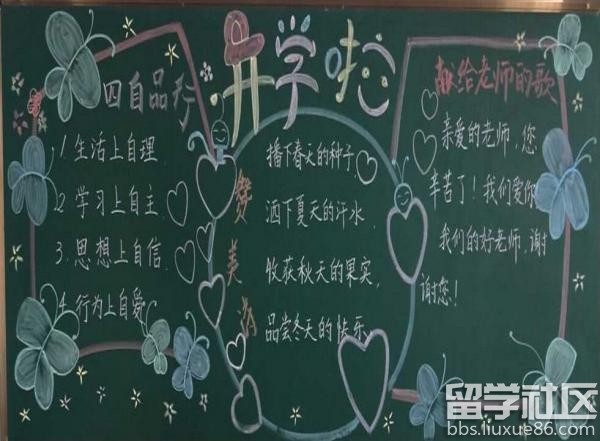 开学啦
四自品行
1.生活上自理
2.学习上自主
3.思想上自信
4.行为上自爱
赞美
播下春天的种子,
洒下夏天的汗水,
收获秋天的果实,
品尝冬天的快乐。
献给老师的歌
亲爱的老师,您
辛苦了!我们爱你
我们的好老师,谢
谢您!
留学社区
bbs.liuxue86.com